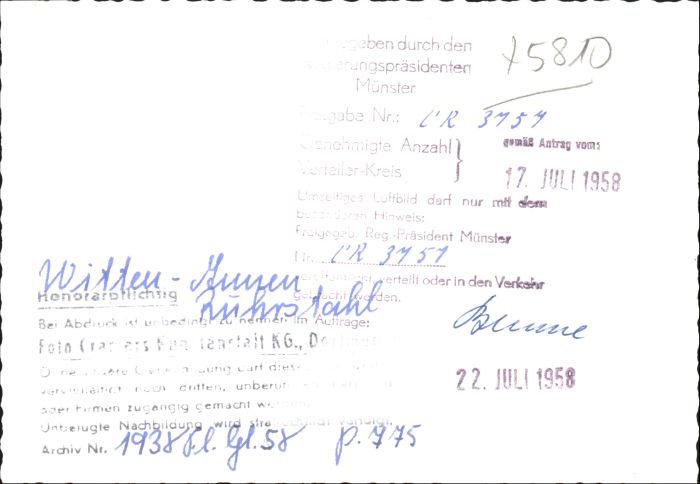 geben durch den
rungspräsidenten
Münster
75810
Freigabe Nr.: CR 3751
Genehmigte Anzahl
Verteiler-Kreis
gemäß Antrag vom:
17. JULI 1958
Umseitiges Luftbild darf nur mit dem
besonderen Hinweis:
Freigegeb. Reg.-Präsident Münster
Nr. CR 3751
verteilt oder in den Verkehr
werden.
Witten-Annen
Ruhrstahl
Honorarpflichtig
Bei Abdruck ist unbedingt zu nennen im Auftrage:
Foto Cramers Kunstanstalt KG., Dortmund
22. JULI 1958
Ohne unsere Genehmigung darf dieses
vervielfältigt noch dritten,
oder Firmen zugängig gemacht werden.
Unbefugte Nachbildung wird strafrechtlich verfolgt.
Archiv Nr. 1938 Fl. Gl. 58 p. 775